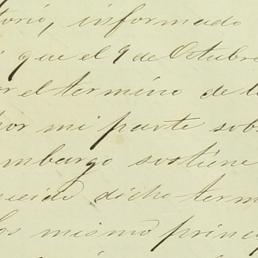 torio, informado
que el 9 de Octubre
or el termino de l
por mi parte sob
embargo sostiene
dicho term
los mismo princ